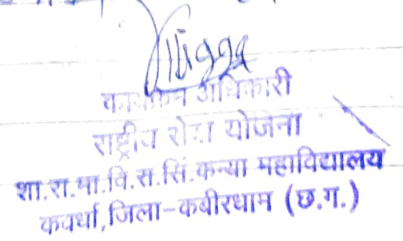 कार्यक्रम अधिकारी
राष्ट्रीय सेवा योजना
शा.रा.मा.वि.रा.सिं.कन्या महाविद्यालय
कवर्धा,जिला-कबीरधाम (छ.ग.)